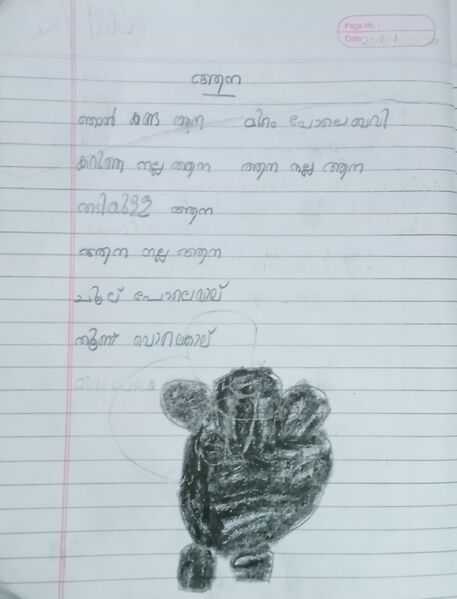 Page No.:
Date
ആന
ഞാൻ കണ്ട ആന മുറം പോലെ ചെവി
കറുത്ത നല്ല ആന ആന നല്ല ആന
തടിയുള്ള ആന
ആന നല്ല ആന
ചൂല് പോലെ വാല്
തൂണ് പൊലെ കാല്